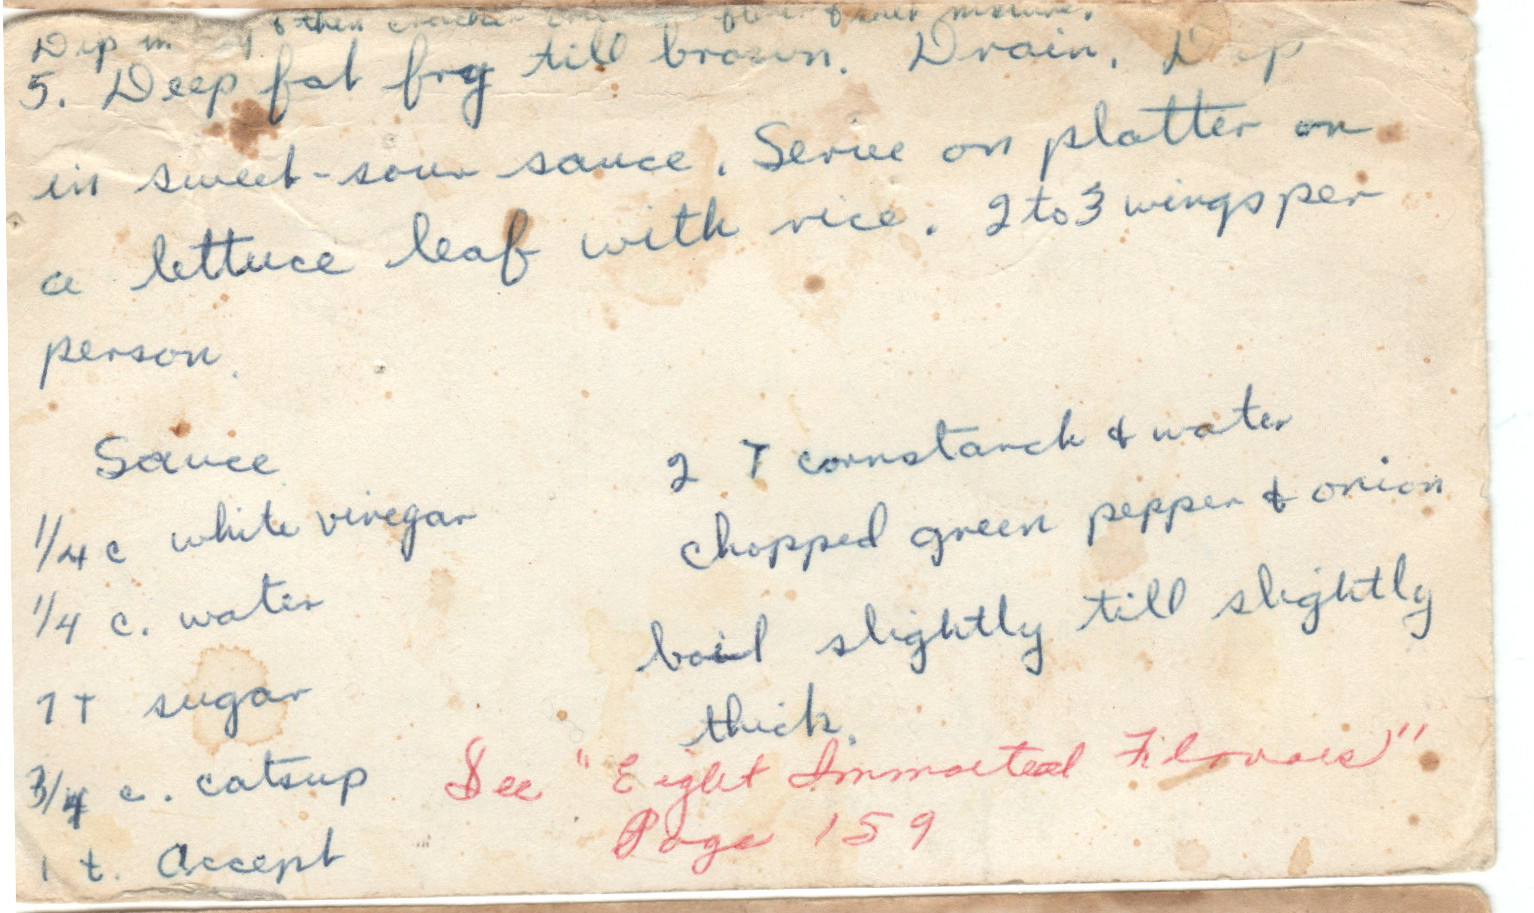 Dip in & then cracker flour mixture.
5. Deep fat fry till brown. Drain. Dip
in sweet-sour sauce. Serve on platter on
a lettuce leaf with rice. 2 to 3 wings per
person.
Sauce
1/4 c white vinegar
1/4 c. water
1 T sugar
3/4 c. catsup
1 t. Accept
2 T cornstarch & water
chopped green pepper & onion
boil slightly till slightly
thick.
See "Eight Immortal Flavors"
Page 159